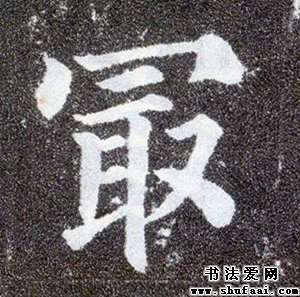 最
书法爱网
www.shufaai.com